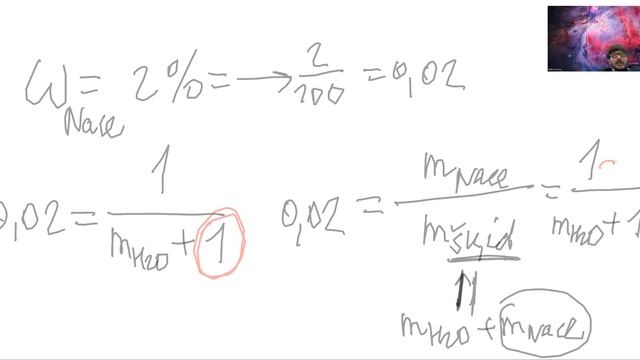 ω NaCl = 2% = → 2/100 = 0,02
0,02 = 1/(mH2O + 1)
0,02 = mNaCl/mšķid = 1/(mH2O + 1
mH2O + mNaCl